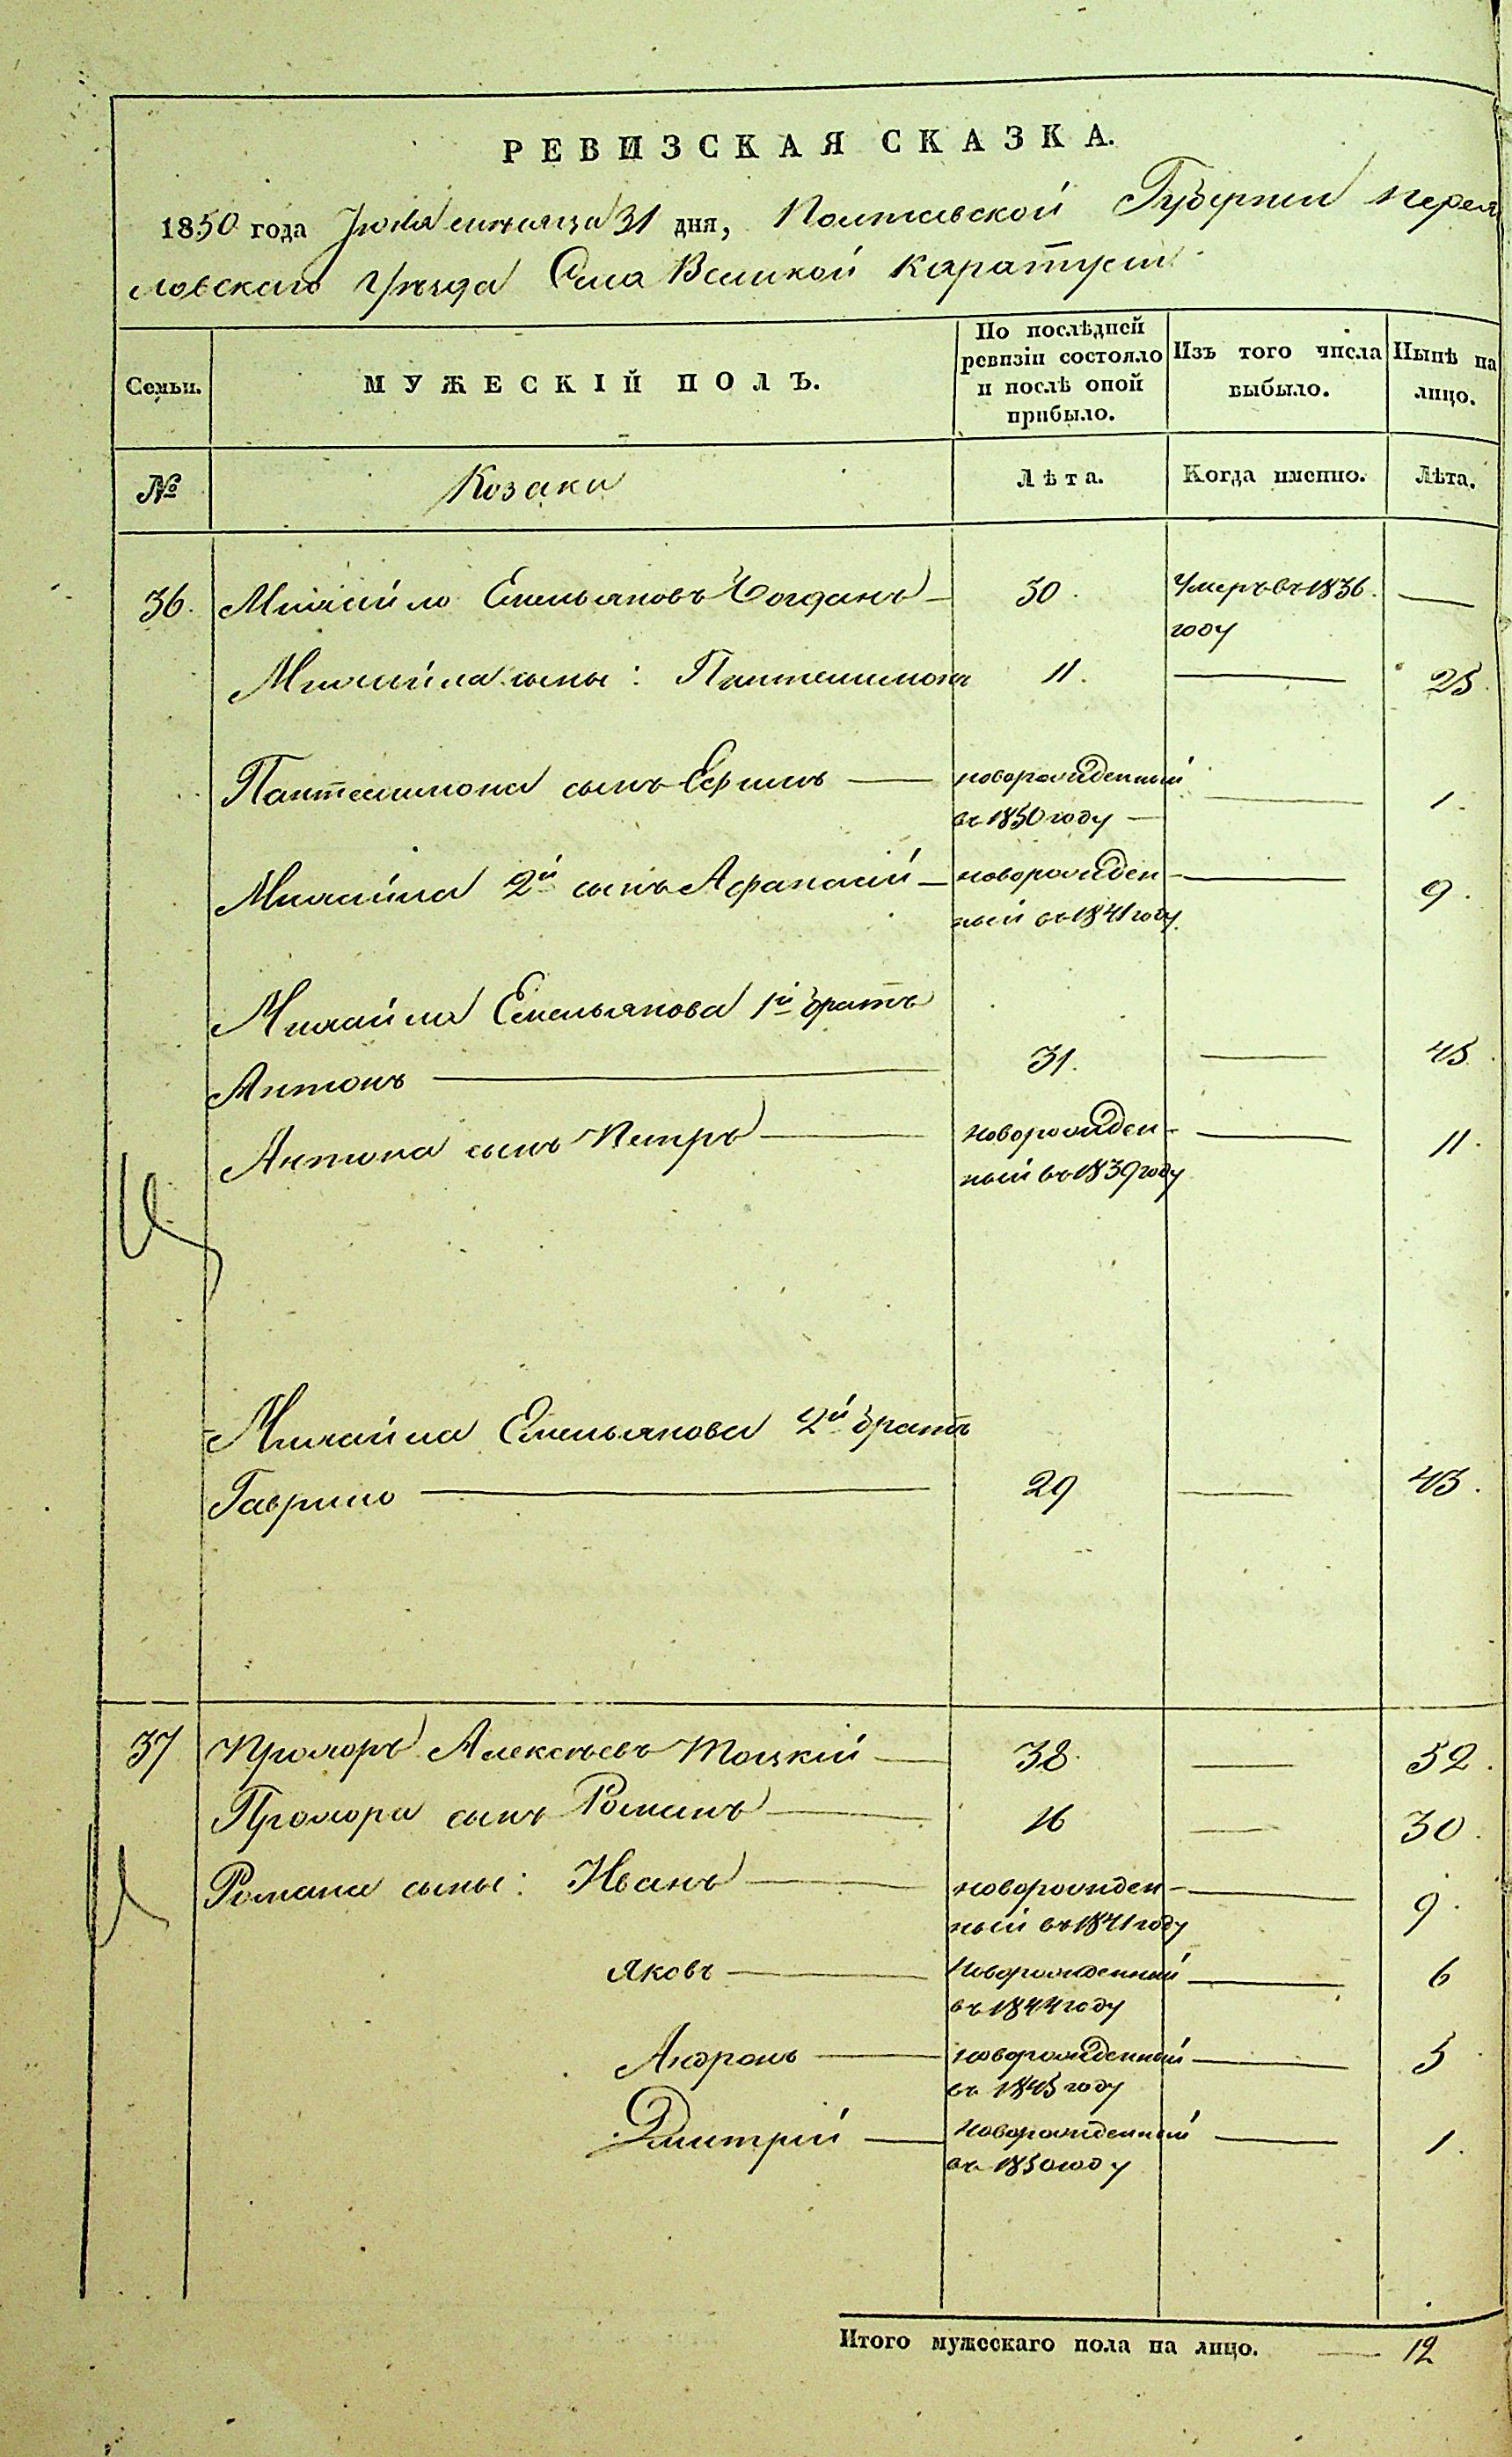 РЕВИЗСКАЯ СКАЗКА.
1850 года Іюля мѣсяца 31 дня, Полтавской Губерніи Перея
славскаго Уѣзда Села Великой Каратули
Семьи.
МУЖЕСКІЙ ПОЛЪ.
По послѣдней
ревизіи состояло
и послѣ оной
прибыло.
Изъ того числа
выбыло.
Нынѣ на
лицо.
№ Козаки Лѣта. Когда именно. Лѣта.
36. Михайло Емельяновъ Богданъ — 30. Умеръ въ 1836. —
году
Михайла сыны: Пантелимонъ 11. — 25.
Пантелимона сынъ Ефимъ — новорожденный — 1.
въ 1850 году —
Михайла 2й сынъ Афанасий — новорожден- — 9.
ный въ 1841 году.
Михайла Емельянова 1й братъ
Антонъ — 31. — 45
Антона сынъ Петръ — новорожден- — 11.
ный въ 1839 году
Михайла Емельянова 2й братъ
Гаврило — 29 — 43.
37 Прохоръ Алексѣевъ Тоцкій — 38. — 52.
Прохора сынъ Романъ — 16 — 30.
Романа сыны: Иванъ — новорожден- — 9.
ный въ 1841 году
Яковъ — Новорожденный — 6
въ 1844 году
Андронъ — новорожденный — 5
въ 1845 году
Дмитрій — Новорожденный — 1.
въ 1850 году
Итого мужескаго пола на лицо. — 12